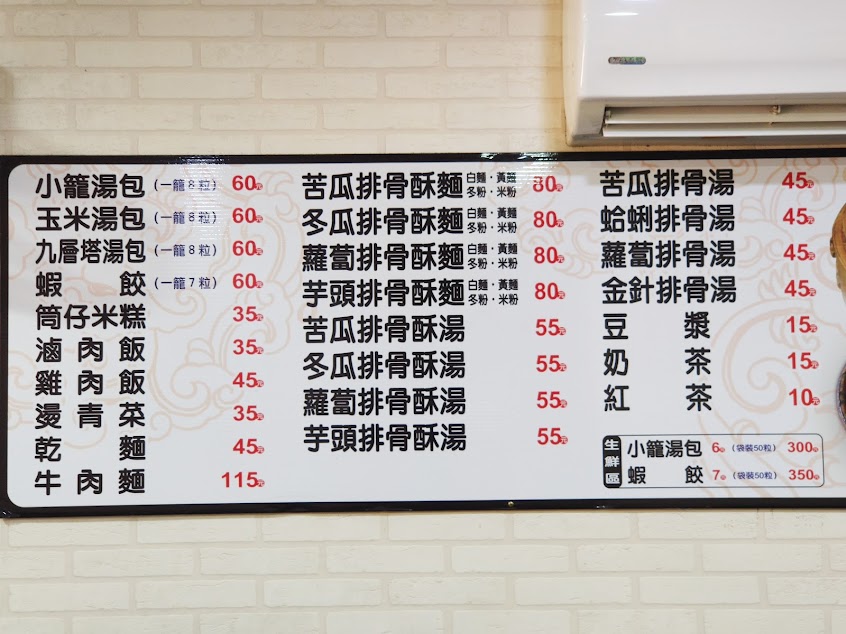 小籠湯包(一籠8粒) 60元
玉米湯包(一籠8粒) 60元
九層塔湯包(一籠8粒) 60元
蝦餃(一籠7粒) 60元
筒仔米糕 35元
滷肉飯 35元
雞肉飯 45元
燙青菜 35元
乾麵 45元
牛肉麵 115元
苦瓜排骨酥麵 白麵·黃麵 80元
冬粉·米粉
冬瓜排骨酥麵 白麵·黃麵 80元
冬粉·米粉
蘿蔔排骨酥麵 白麵·黃麵 80元
冬粉·米粉
芋頭排骨酥麵 白麵·黃麵 80元
冬粉·米粉
苦瓜排骨酥湯 55元
冬瓜排骨酥湯 55元
蘿蔔排骨酥湯 55元
芋頭排骨酥湯 55元
苦瓜排骨湯 45元
蛤蜊排骨湯 45元
蘿蔔排骨湯 45元
金針排骨湯 45元
豆漿 15元
奶茶 15元
紅茶 10元
生鮮區
小籠湯包 6元 (袋裝50粒) 300元
蝦餃 7元 (袋裝50粒) 350元